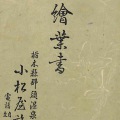 繪葉書
栃木縣那須温泉
小松屋
電話